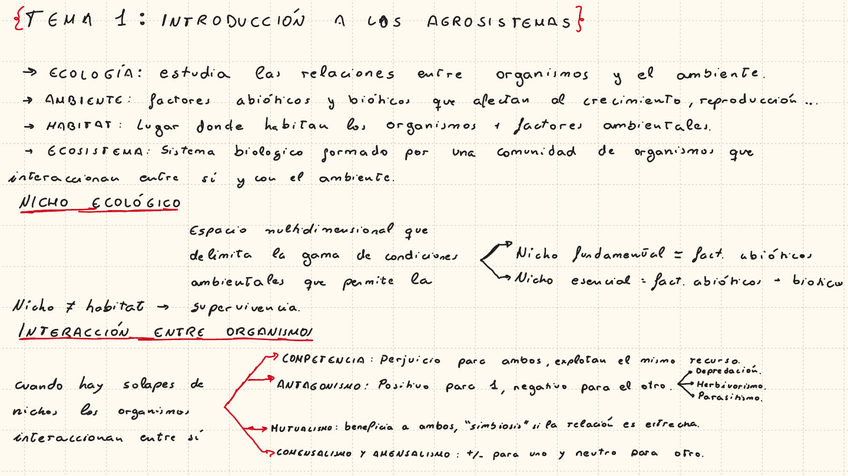 {TEMA 1: INTRODUCCIÓN A LOS AGROSISTEMAS}
→ ECOLOGÍA: estudia las relaciones entre organismos y el ambiente.
→ AMBIENTE: factores abióticos y bióticos que afectan al crecimiento, reproducción...
→ HABITAT: Lugar donde habitan los organismos + factores ambientales.
→ ECOSISTEMA: Sistema biologico formado por una comunidad de organismos que
interaccionan entre sí y con el ambiente.
NICHO ECOLÓGICO
Espacio multidimensional que
delimita la gama de condiciones
ambientales que permite la
Nicho ≠ habitat → supervivencia.
Nicho fundamental = fact. abióticos
Nicho esencial = fact. abióticos + bioticos
INTERACCIÓN ENTRE ORGANISMOS
cuando hay solapes de
nichos los organismos
interaccionan entre sí
COMPETENCIA: Perjuicio para ambos, explotan el mismo recurso.
ANTAGONISMO: Positivo para 1, negativo para el otro.
Depredación.
Herbivorismo.
Parasitismo.
MUTUALISMO: beneficia a ambos, "simbiosis" si la relación es estrecha.
COMENSALISMO Y AMENSALISMO: +/- para uno y neutro para otro.